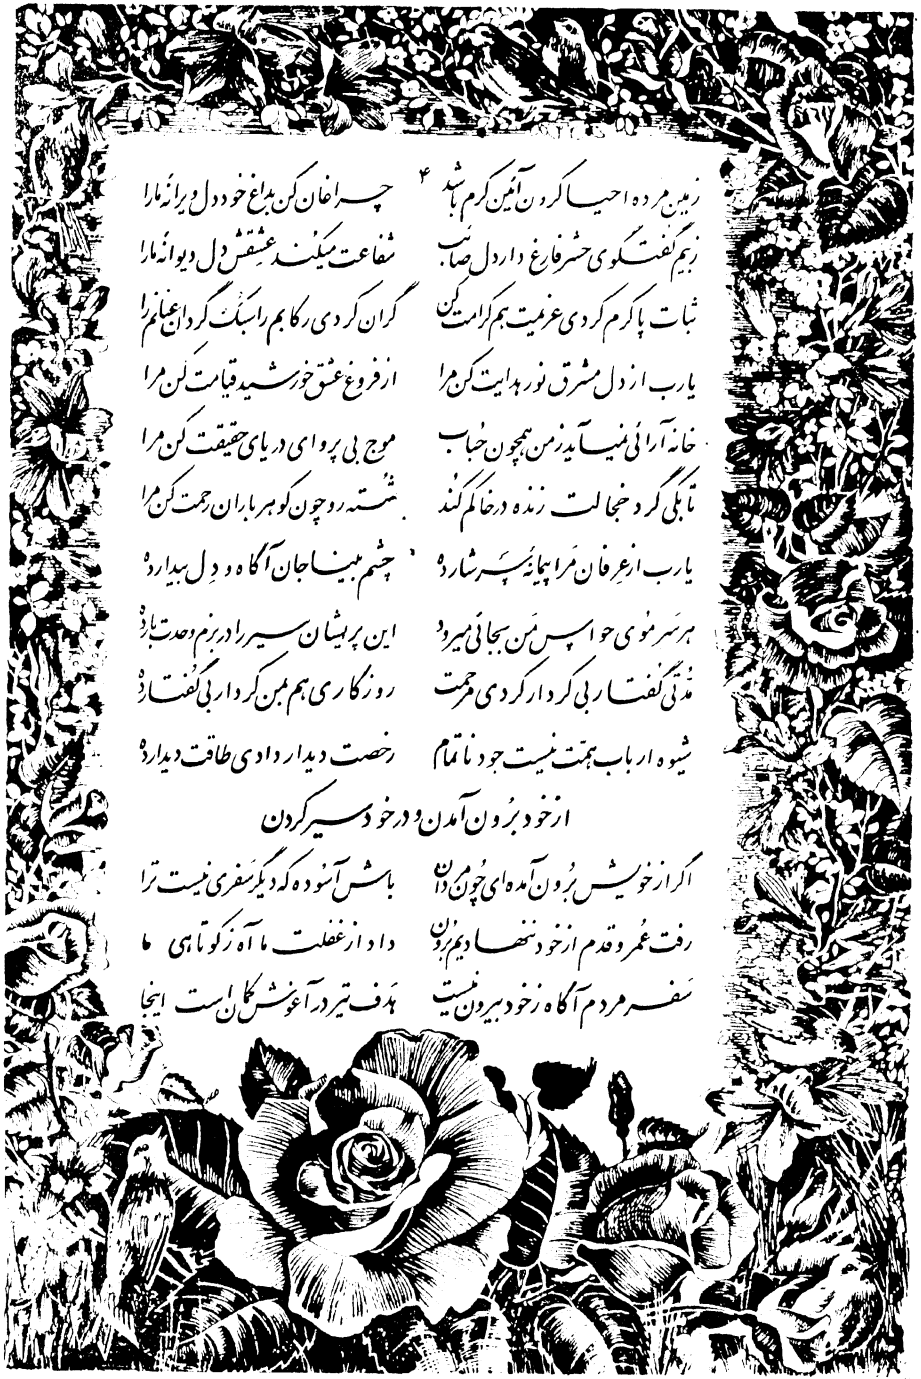 ۴
زمین مرده احیا کردن آئین کرم باشد چراغان کن بداغ خود دل ویرانهٔ ما را
زبیم گفتگوی حشر فارغ دار دل صائب شفاعت میکند عشقش دل دیوانهٔ ما را
ثبات پا کرم کردی عزیمت هم کرامت کن گران کردی رکابم را سبک گردان عنانم را
یارب از دل مشرق نور هدایت کن مرا از فروغ عشق خورشید قیامت کن مرا
خانه آرائی نمیآید ز من همچون حباب موج بی پروای دریای حقیقت کن مرا
تا بکی گرد خجالت زنده در خاکم کند شسته رو چون گوهر باران رحمت کن مرا
یارب از عرفان مرا پیمانهٔ سرشار ده چشم بینا جان آگاه و دل بیدار ده
هر سر موی حواس من بجائی میرود این پریشان سیر را در بزم وحدت بار ده
مدتی گفتار بی کردار کردی مرحمت روزگاری هم بمن کردار بی گفتار ده
شیوه ارباب همت نیست جود ناتمام رخصت دیدار دادی طاقت دیدار ده
از خود برون آمدن و در خود سیر کردن
اگر از خویش برون آمده ای چون مردان باش آسوده که دیگر سفری نیست ترا
رفت عمر و قدم از خود ننهادیم برون داد از غفلت ما آه ز کوتاهی ما
سفر مردم آگاه ز خود بیرون نیست هدف تیر در آغوش کمان است اینجا